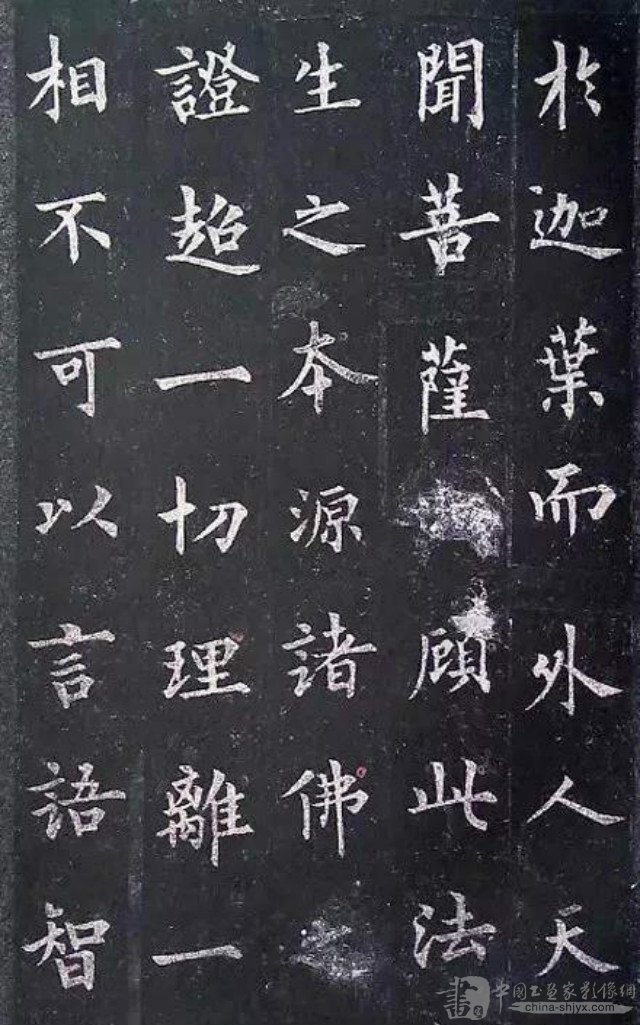 於迦葉而外人天
聞菩薩顧此法
生之本源諸佛
證超一切理離一
相不可以言語智
china-shjyx.com